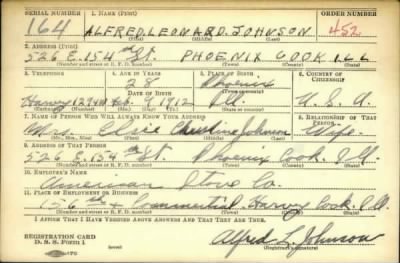 SERIAL NUMBER 1. NAME (Print) ORDER NUMBER
164 ALFRED LEONARD JOHNSON 452
(First) (Middle) (Last)
2. ADDRESS (Print)
526 E. 154th St. PHOENIX COOK ILL
(Number and street or R. F. D. number) (Town) (County) (State)
3. TELEPHONE 4. AGE IN YEARS 5. PLACE OF BIRTH 6. COUNTRY OF CITIZENSHIP
28 Phoenix
DATE OF BIRTH (Town or county)
Harvey 1912 Ill. U. S. A.
(Exchange) (Number) (Mo.) (Day) (Yr.) (State or country)
7. NAME OF PERSON WHO WILL ALWAYS KNOW YOUR ADDRESS 8. RELATIONSHIP OF THAT PERSON
Mrs. Elsie Christine Johnson Wife
(Mr., Mrs., Miss) (First) (Middle) (Last)
9. ADDRESS OF THAT PERSON
526 E. 154th St. Phoenix Cook. Ill.
(Number and street or R. F. D. number) (Town) (County) (State)
10. EMPLOYER'S NAME
American Stove Co.
11. PLACE OF EMPLOYMENT OR BUSINESS
156th & Commercial Harvey Cook. Ill
(Number and street or R. F. D. number) (Town) (County) (State)
I AFFIRM THAT I HAVE VERIFIED ABOVE ANSWERS AND THAT THEY ARE TRUE.
REGISTRATION CARD
D. S. S. Form 1 Alfred L. Johnson